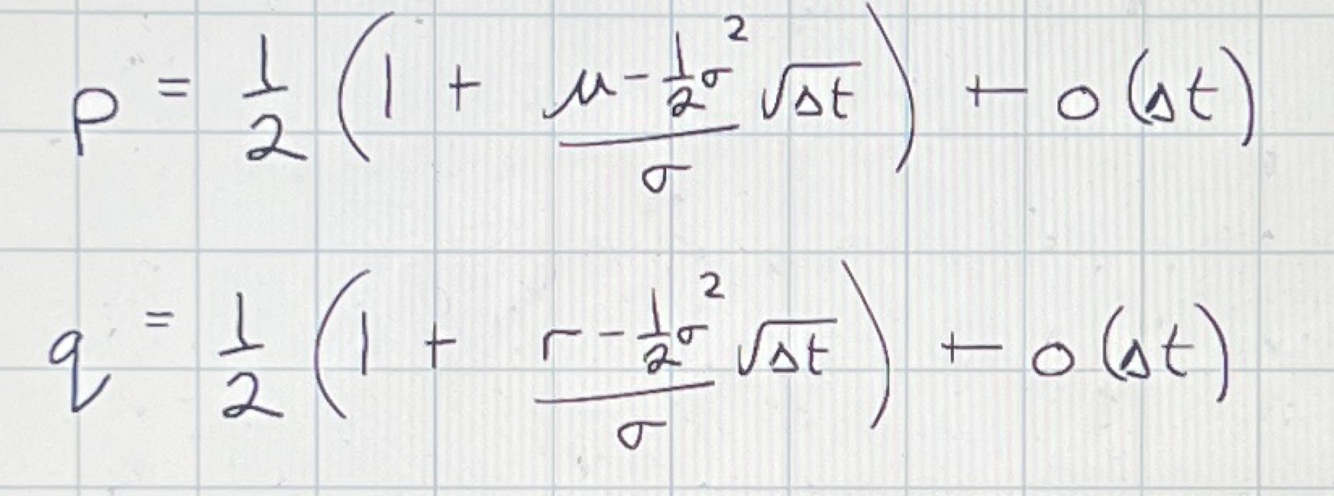 p = \frac{1}{2} \left( 1 + \frac{\mu - \frac{1}{2}\sigma^2}{\sigma} \sqrt{\Delta t} \right) + o(\Delta t)
q = \frac{1}{2} \left( 1 + \frac{r - \frac{1}{2}\sigma^2}{\sigma} \sqrt{\Delta t} \right) + o(\Delta t)